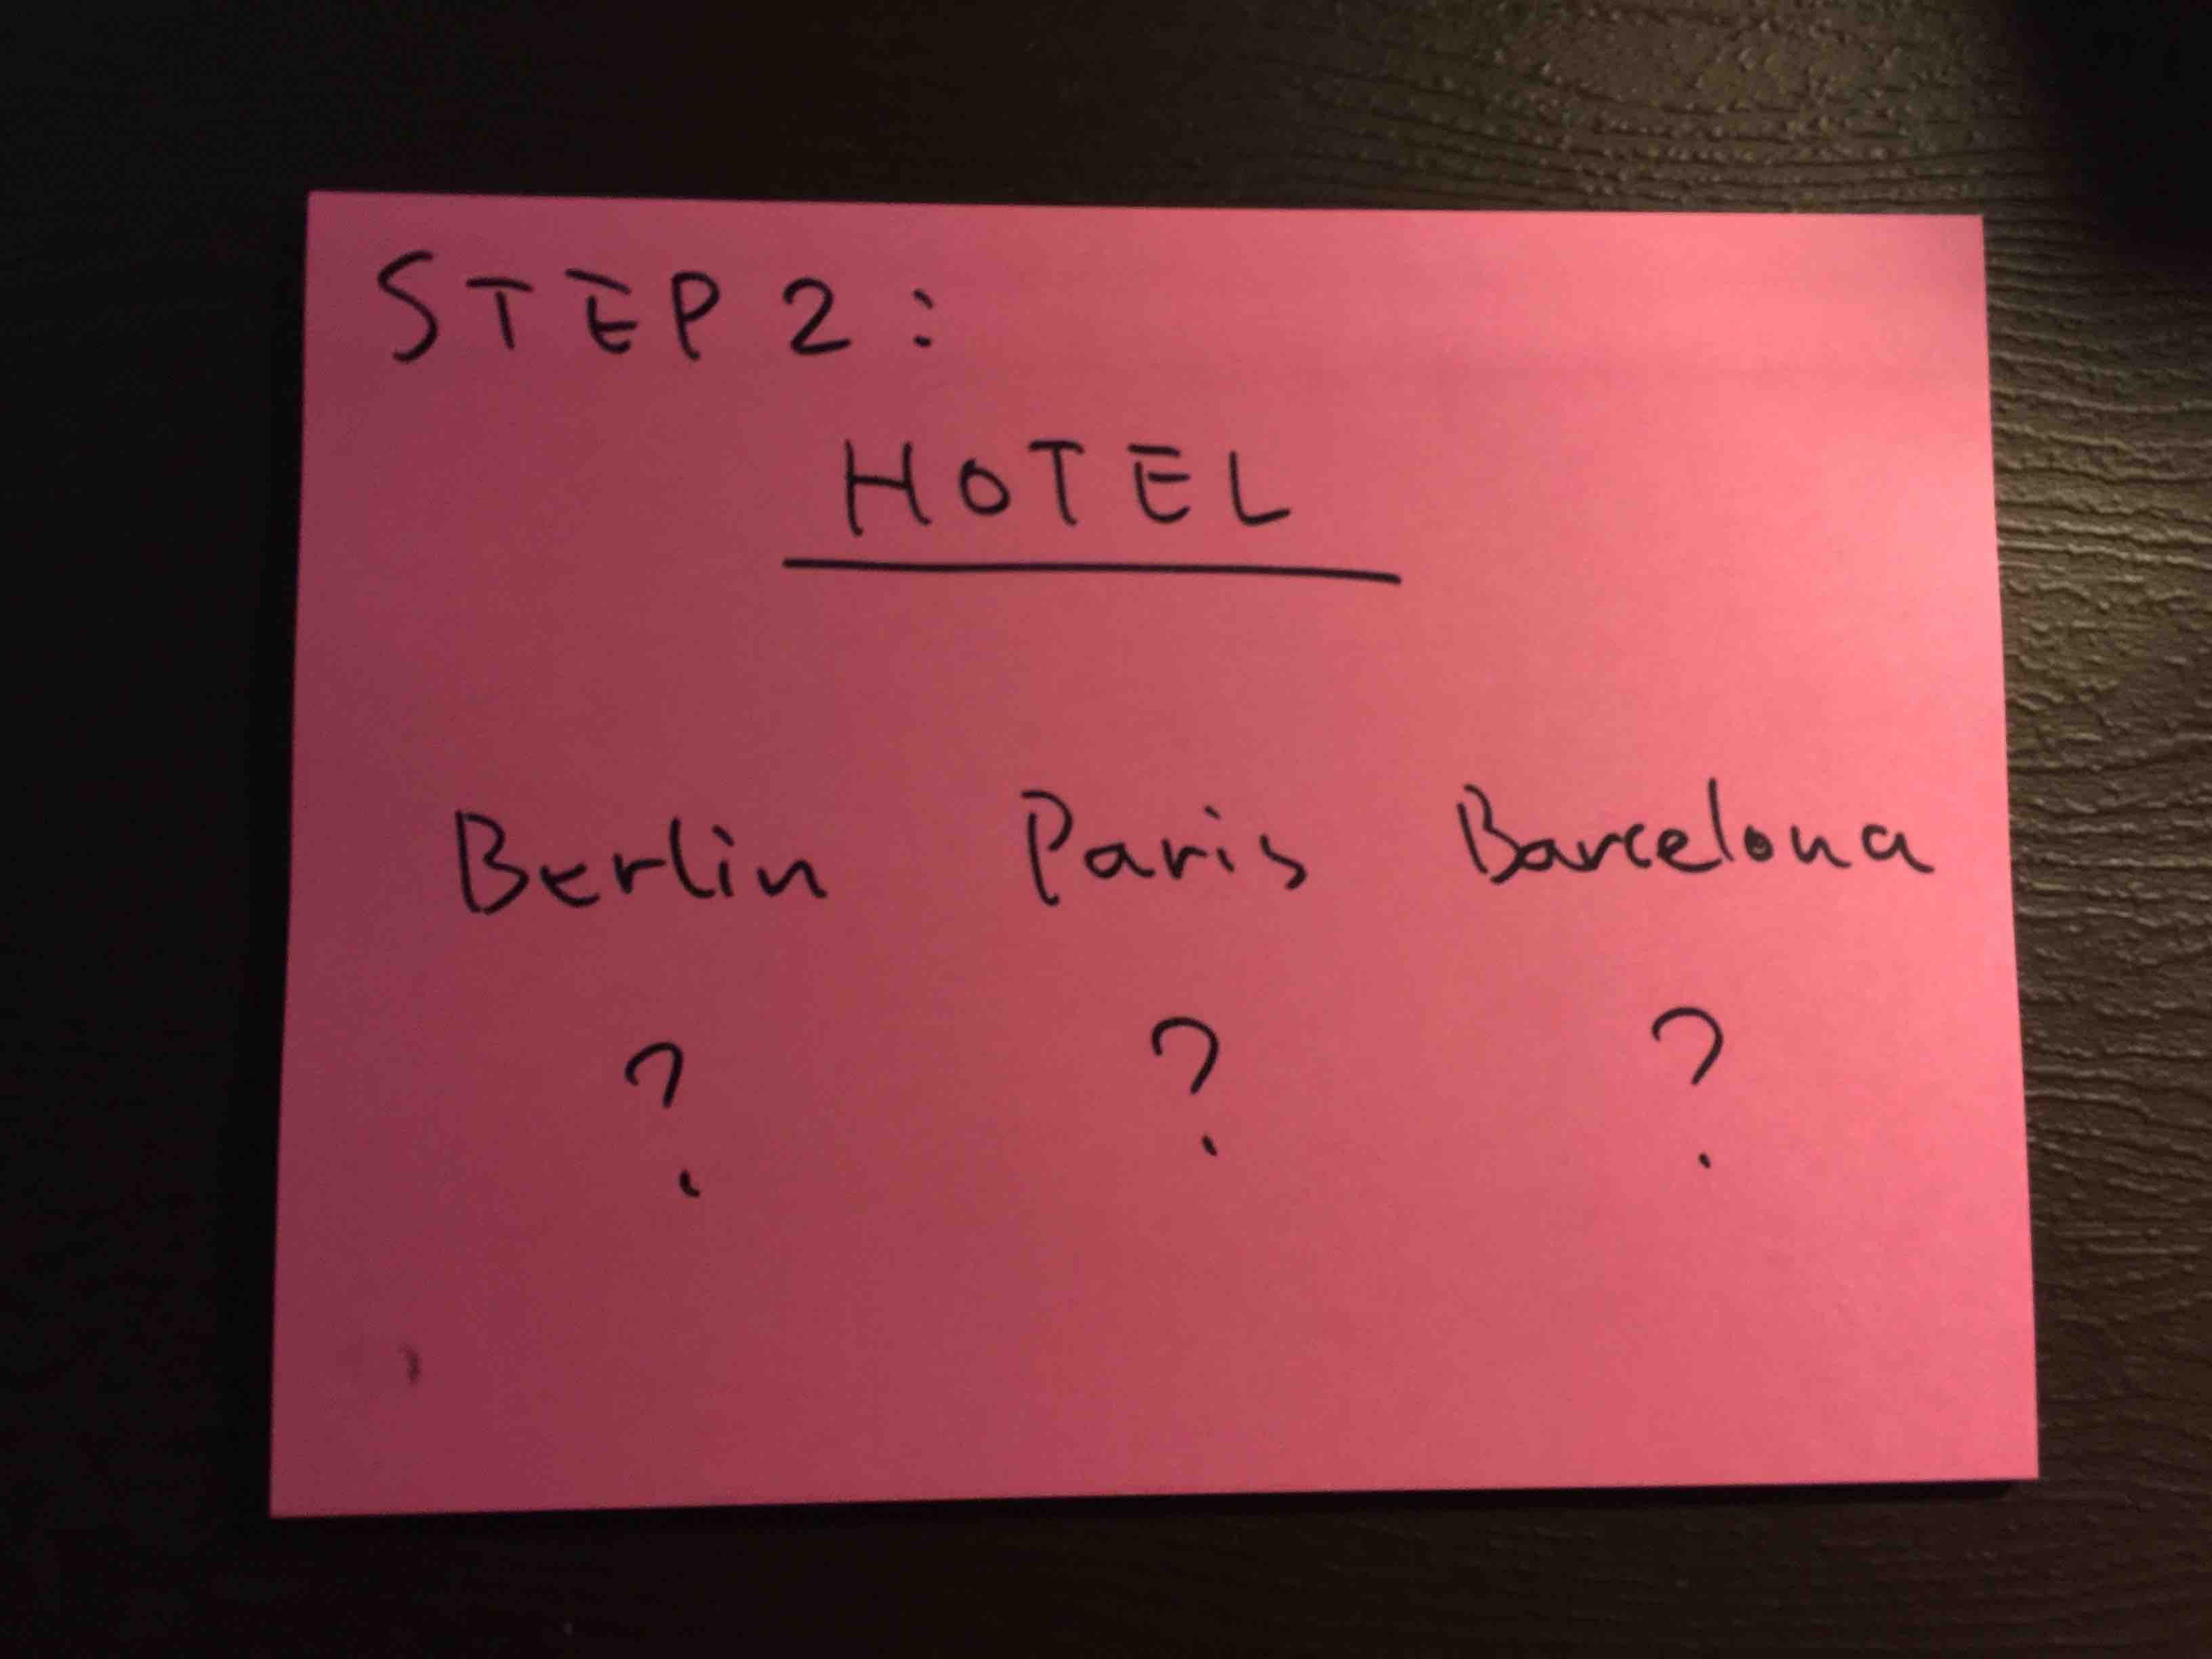 STEP 2:
HOTEL
Berlin Paris Barcelona
? ? ?